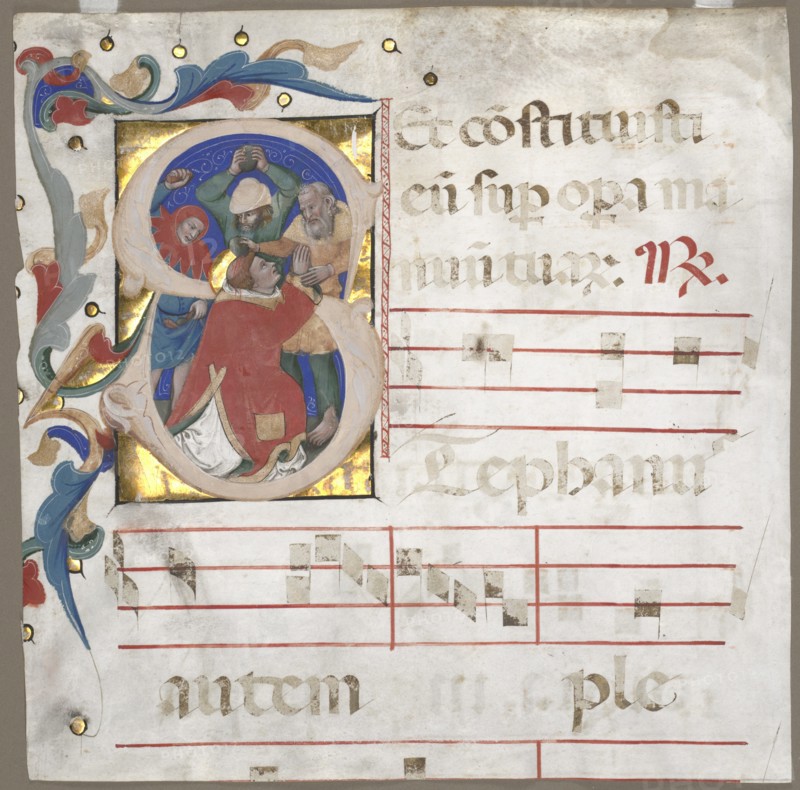 Et cõstituisti
eũ sup opa ma
nuũ tuaꝝ: ℟.
Stephanus
autem ple